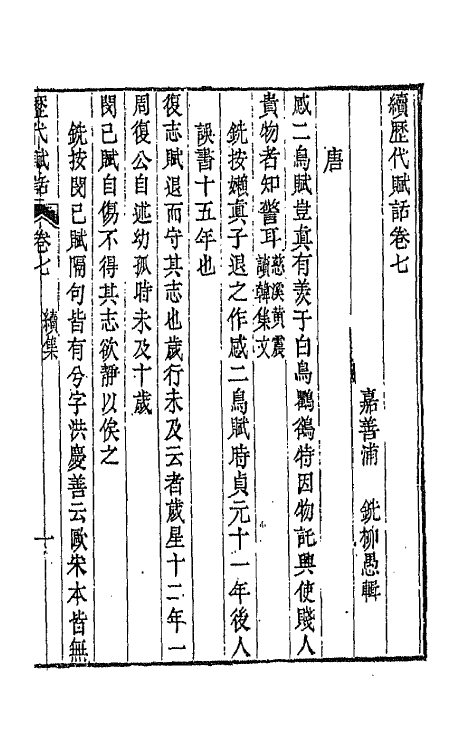 續歷代賦話卷七
嘉善浦　銑柳愚輯
唐
感二鳥賦豈真有羨于白鳥鸜鵒特因物託興使賤人
貴物者知警耳慈溪黃震讀韓集文
銑按嬾真子退之作感二鳥賦時貞元十一年後人
誤書十五年也
復志賦退而守其志也歲行未及云者歲星十二年一
周復公自述幼孤時未及十歲
閔己賦自傷不得其志欲靜以俟之
銑按閔已賦隔句皆有兮字洪慶善云歐宋本皆無
歷代賦話　卷七　續集　一